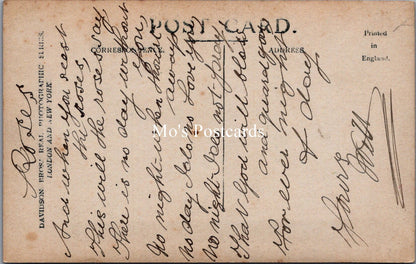 POST CARD.
CORRESPONDENCE.
ADDRESS.
Printed
in
England.
DAVIDSON BROS.' REAL PHOTOGRAPHIC SERIES.
LONDON AND NEW YORK
Roses
And when you scent
the roses,
This will the roses say
There is no day without
you
No night when thou
away
no day I do not love you
No night I do not pray
That God will bless
and guard you
For ever night
& day
Yours
Mo's Postcards